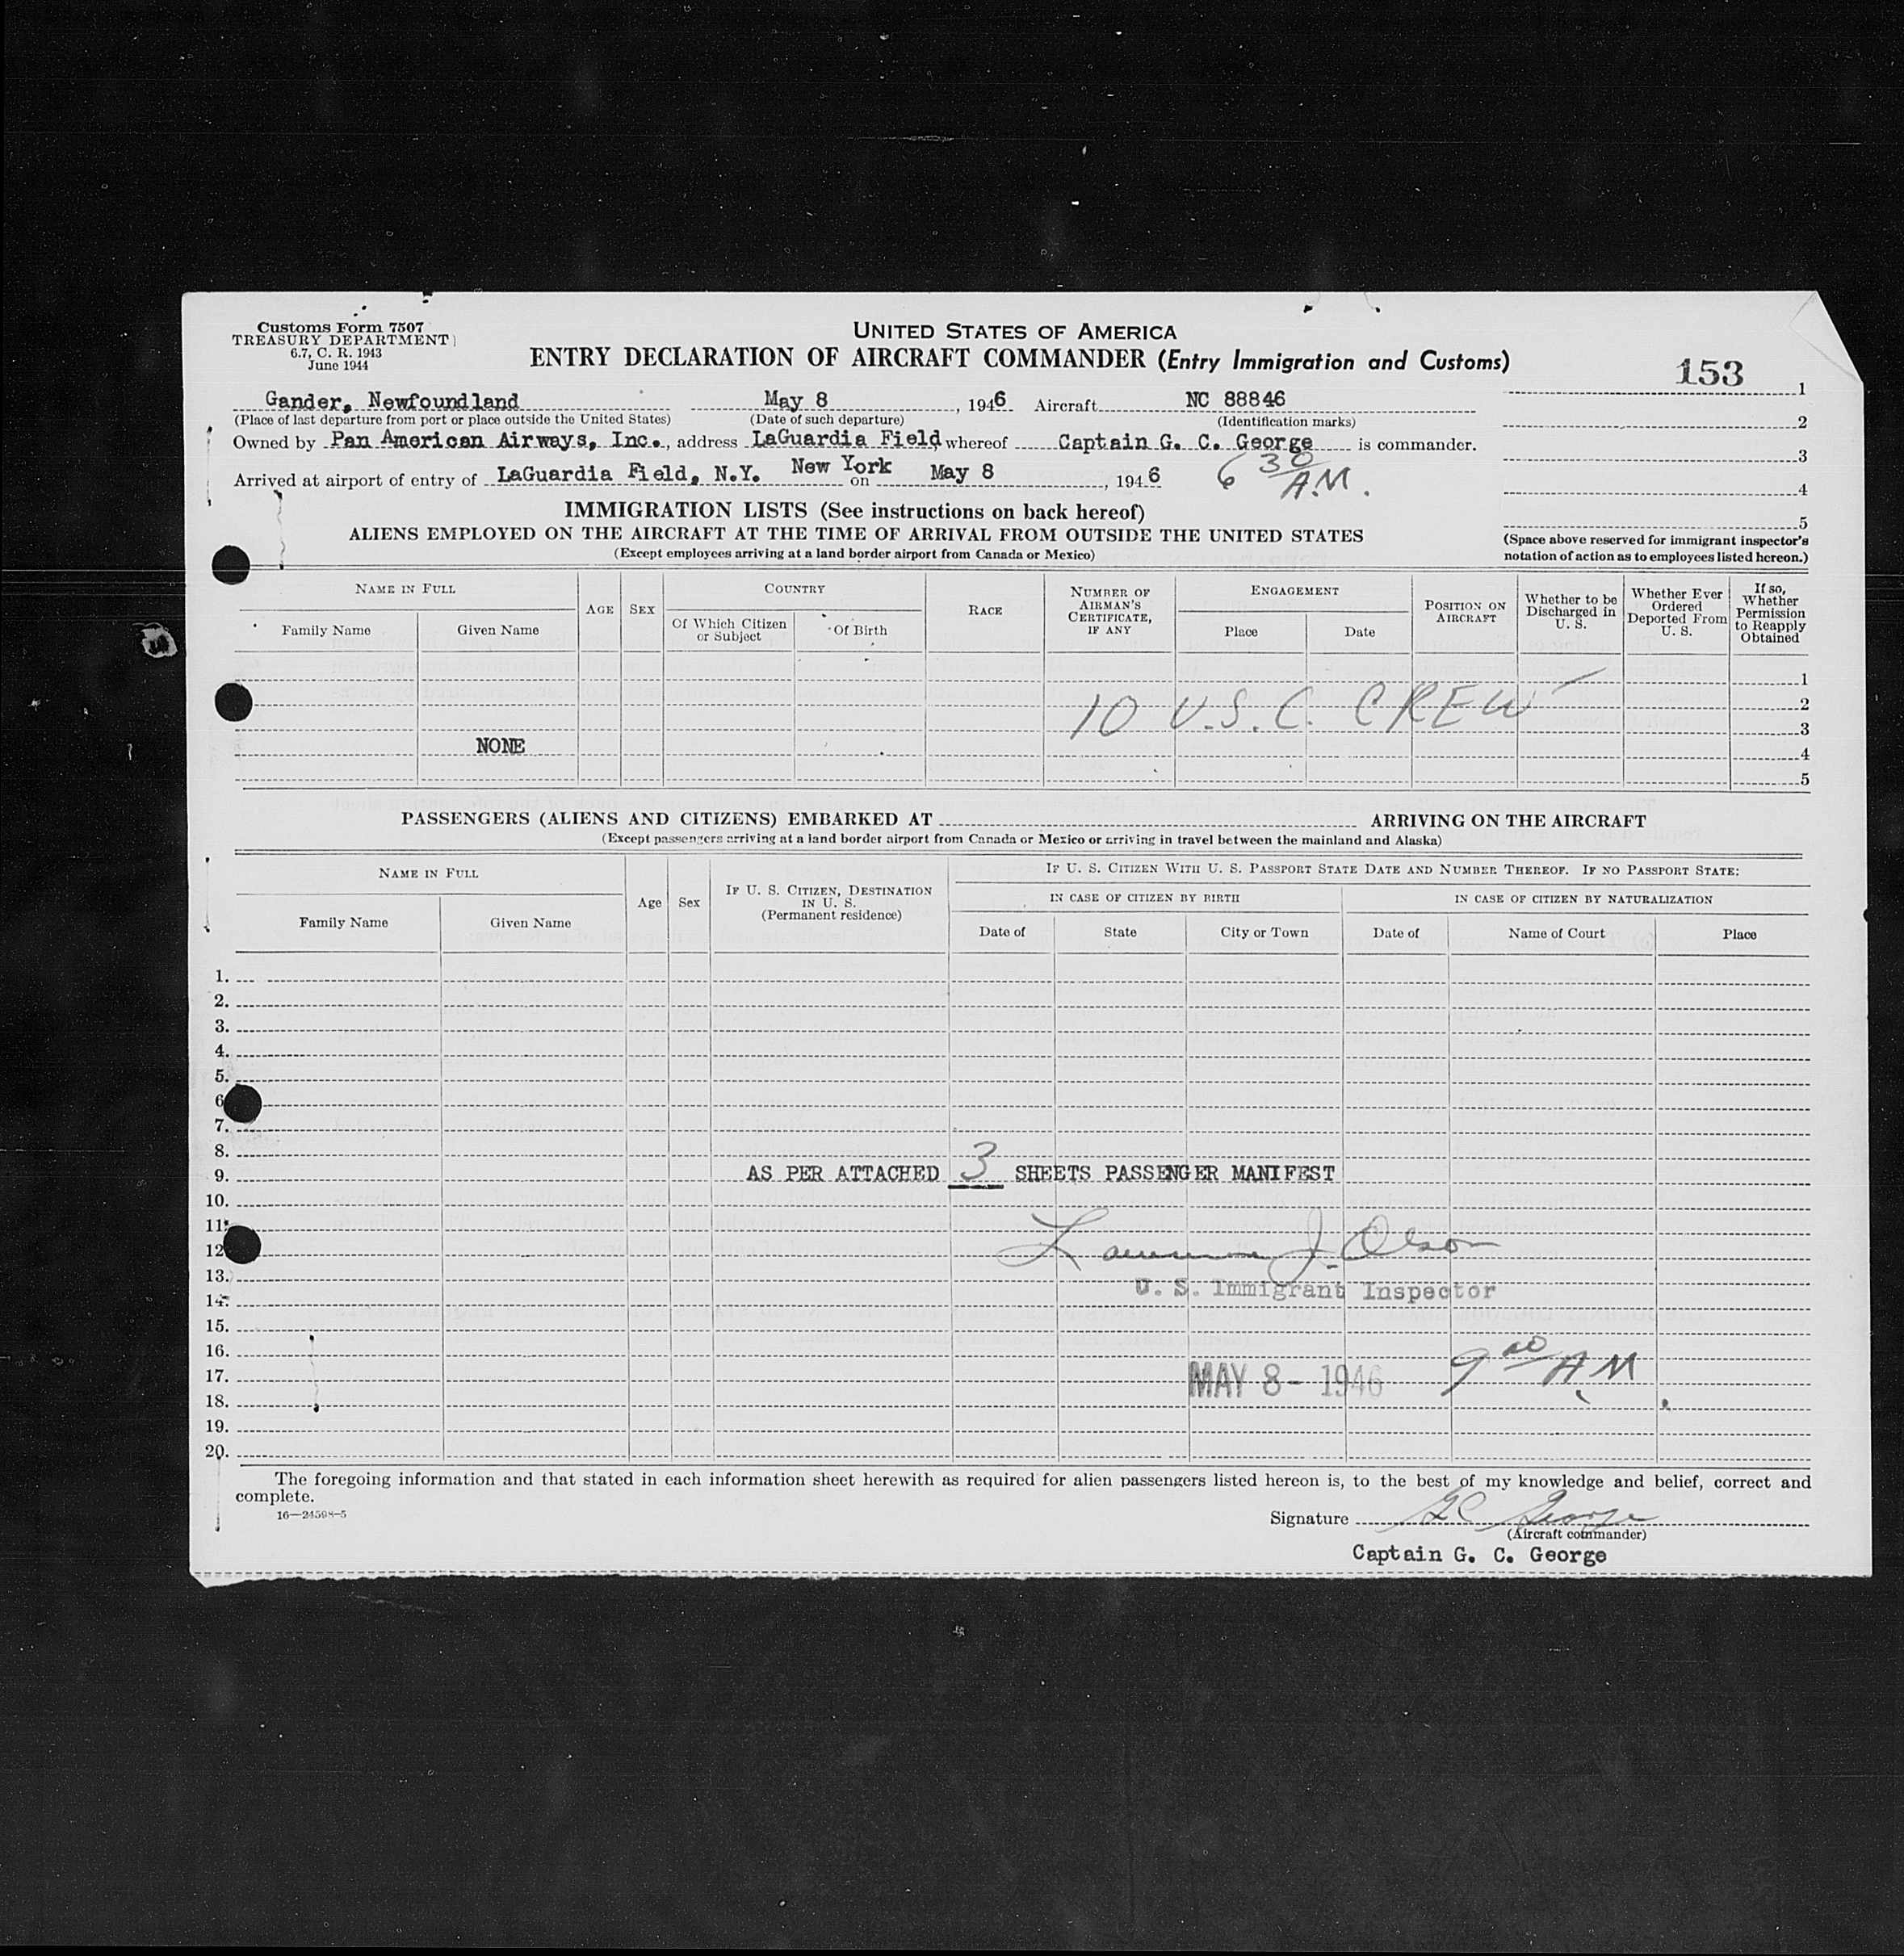 Customs Form 7507
TREASURY DEPARTMENT
6.7, C. R. 1943
June 1944
UNITED STATES OF AMERICA
ENTRY DECLARATION OF AIRCRAFT COMMANDER (Entry Immigration and Customs)
153
Gander, Newfoundland May 8, 1946 Aircraft NC 88846
(Place of last departure from port or place outside the United States) (Date of such departure) (Identification marks)
Owned by Pan American Airways, Inc., address LaGuardia Field, whereof Captain G. C. George is commander.
Arrived at airport of entry of LaGuardia Field, N.Y. New York on May 8, 1946 6 30 A.M.
1
2
3
4
5
(Space above reserved for immigrant inspector's
notation of action as to employees listed hereon.)
IMMIGRATION LISTS (See instructions on back hereof)
ALIENS EMPLOYED ON THE AIRCRAFT AT THE TIME OF ARRIVAL FROM OUTSIDE THE UNITED STATES
(Except employees arriving at a land border airport from Canada or Mexico)
NAME IN FULL
Family Name
Given Name
AGE
SEX
COUNTRY
Of Which Citizen
or Subject
Of Birth
RACE
NUMBER OF
AIRMAN'S
CERTIFICATE,
IF ANY
ENGAGEMENT
Place
Date
POSITION ON
AIRCRAFT
Whether to be
Discharged in
U. S.
Whether Ever
Ordered
Deported From
U. S.
If so,
Whether
Permission
to Reapply
Obtained
1
2
10 U.S.C. CREW
3
NONE
4
5
PASSENGERS (ALIENS AND CITIZENS) EMBARKED AT ARRIVING ON THE AIRCRAFT
(Except passengers arriving at a land border airport from Canada or Mexico or arriving in travel between the mainland and Alaska)
NAME IN FULL
Family Name
Given Name
Age
Sex
IF U. S. CITIZEN, DESTINATION
IN U. S.
(Permanent residence)
IF U. S. CITIZEN WITH U. S. PASSPORT STATE DATE AND NUMBER THEREOF. IF NO PASSPORT STATE:
IN CASE OF CITIZEN BY BIRTH
Date of
State
City or Town
IN CASE OF CITIZEN BY NATURALIZATION
Date of
Name of Court
Place
1.
2.
3.
4.
5.
6
7.
8.
9. AS PER ATTACHED 3 SHEETS PASSENGER MANIFEST
10.
11.
12 Lawrence J. Olson
13.
U. S. Immigrant Inspector
14.
15.
16.
17. MAY 8 - 1946 9 00 A.M.
18.
19.
20.
The foregoing information and that stated in each information sheet herewith as required for alien passengers listed hereon is, to the best of my knowledge and belief, correct and
complete.
16—24598-5
Signature G C George
(Aircraft commander)
Captain G. C. George